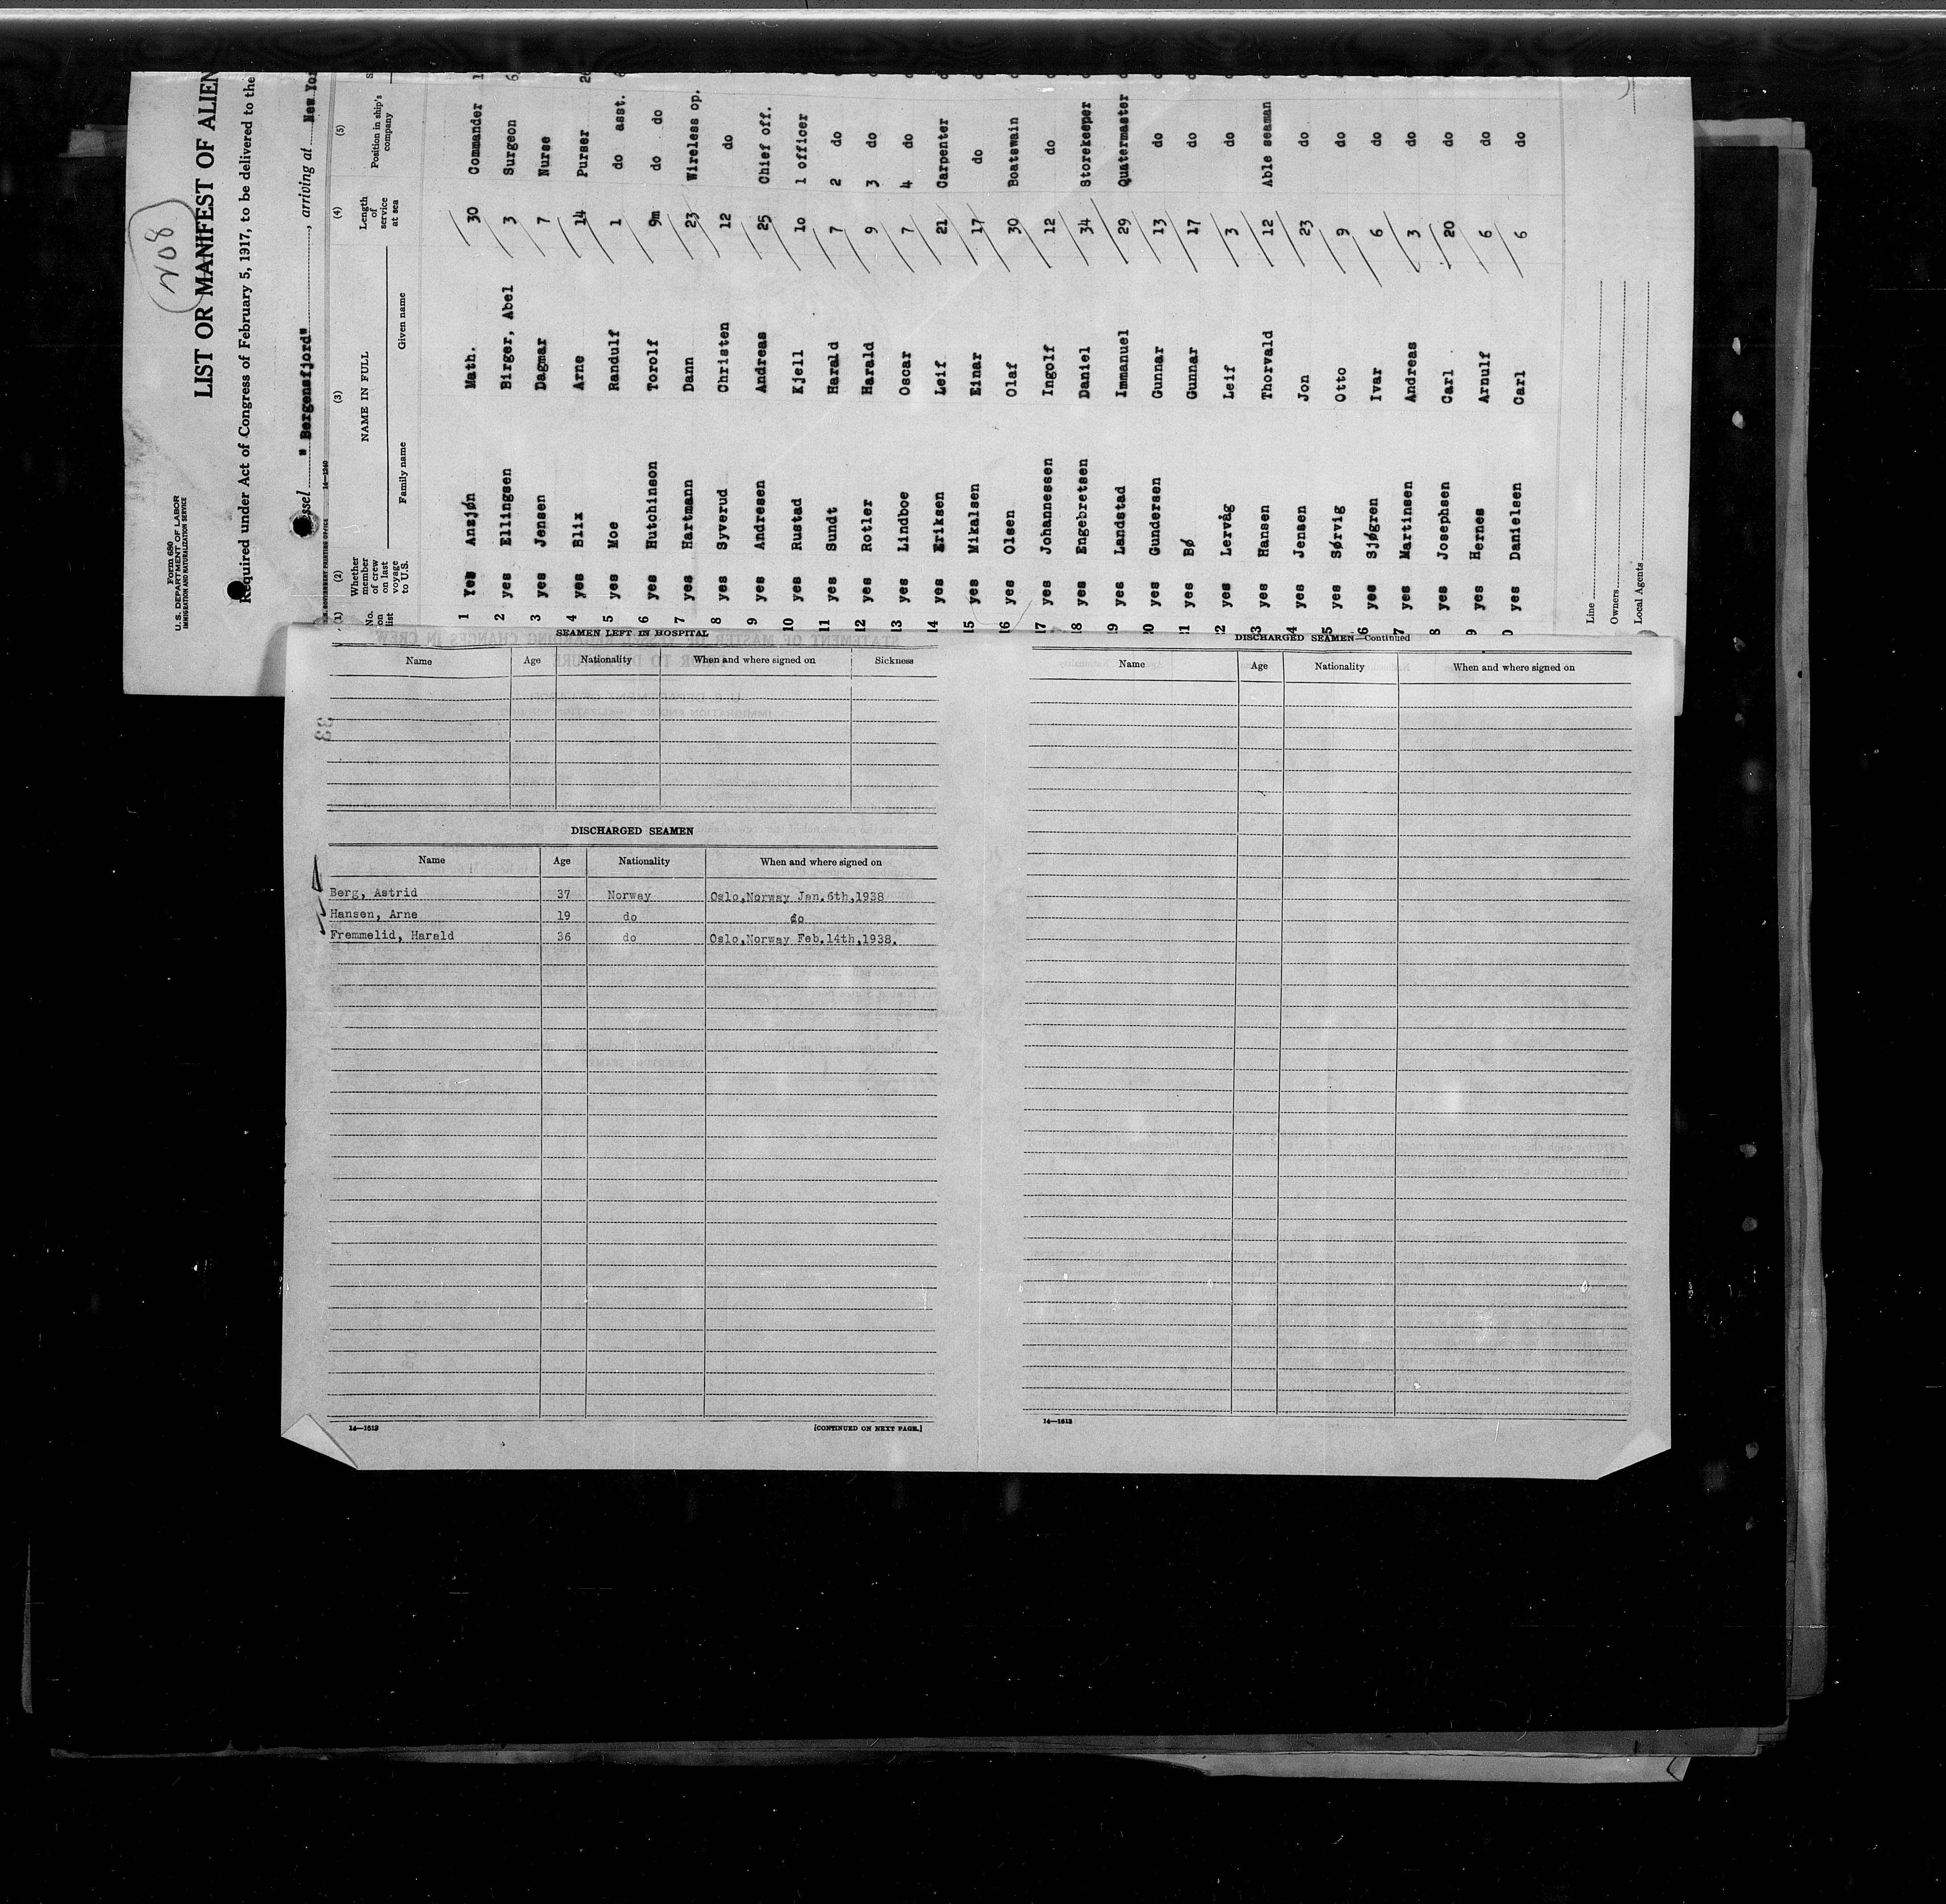 208
Form 680
U. S. DEPARTMENT OF LABOR
IMMIGRATION AND NATURALIZATION SERVICE
LIST OR MANIFEST OF ALIEN
Required under Act of Congress of February 5, 1917, to be delivered to the
"Bergensfjord", arriving at New Yor
U.S. GOVERNMENT PRINTING OFFICE 14—1240
(1) (2) (3) (4) (5)
No. on list Whether member of crew on last voyage to U.S. NAME IN FULL Length of service at sea Position in ship's company
Family name Given name
1 Yes Ansjøn Math. 30 Commander
2 yes Ellingsen Birger, Abel 3 Surgeon
3 yes Jensen Dagmar 7 Nurse
4 yes Blix Arne 14 Purser
5 yes Moe Randulf 1 do asst.
6 yes Hutchinson Torolf 9m do do
7 yes Hartmann Dann 23 Wireless op.
8 yes Syverud Christen 12 do
9 yes Andresen Andreas 25 Chief off.
10 yes Rustad Kjell 10 1 officer
11 yes Sundt Harald 7 2 do
12 yes Rotler Harald 9 3 do
13 yes Lindboe Oscar 7 4 do
14 yes Eriksen Leif 21 Carpenter
15 yes Mikalsen Einar 17 do
16 yes Olsen Olaf 30 Boatswain
17 yes Johannessen Ingolf 12 do
18 yes Engebretsen Daniel 34 Storekeeper
19 yes Landstad Immanuel 29 Quatermaster
0 yes Gundersen Gunnar 13 do
1 yes Bø Gunnar 17 do
2 yes Lervåg Leif 3 do
3 yes Hansen Thorvald 12 Able seaman
4 yes Jensen Jon 23 do
5 yes Sørvig Otto 9 do
6 yes Sjøgren Ivar 6 do
7 yes Martinsen Andreas 3 do
8 yes Josephsen Carl 20 do
9 yes Hernes Arnulf 6 do
0 yes Danielsen Carl 6 do
Line
Owners
Local Agents
SEAMEN LEFT IN HOSPITAL
Name Age Nationality When and where signed on Sickness
DISCHARGED SEAMEN
Name Age Nationality When and where signed on
Berg, Astrid 37 Norway Oslo,Norway Jan.6th,1938
Hansen, Arne 19 do do
Fremmelid, Harald 36 do Oslo,Norway Feb.14th,1938.
14—1613 [CONTINUED ON NEXT PAGE.]
DISCHARGED SEAMEN—Continued
Name Age Nationality When and where signed on
14—1613